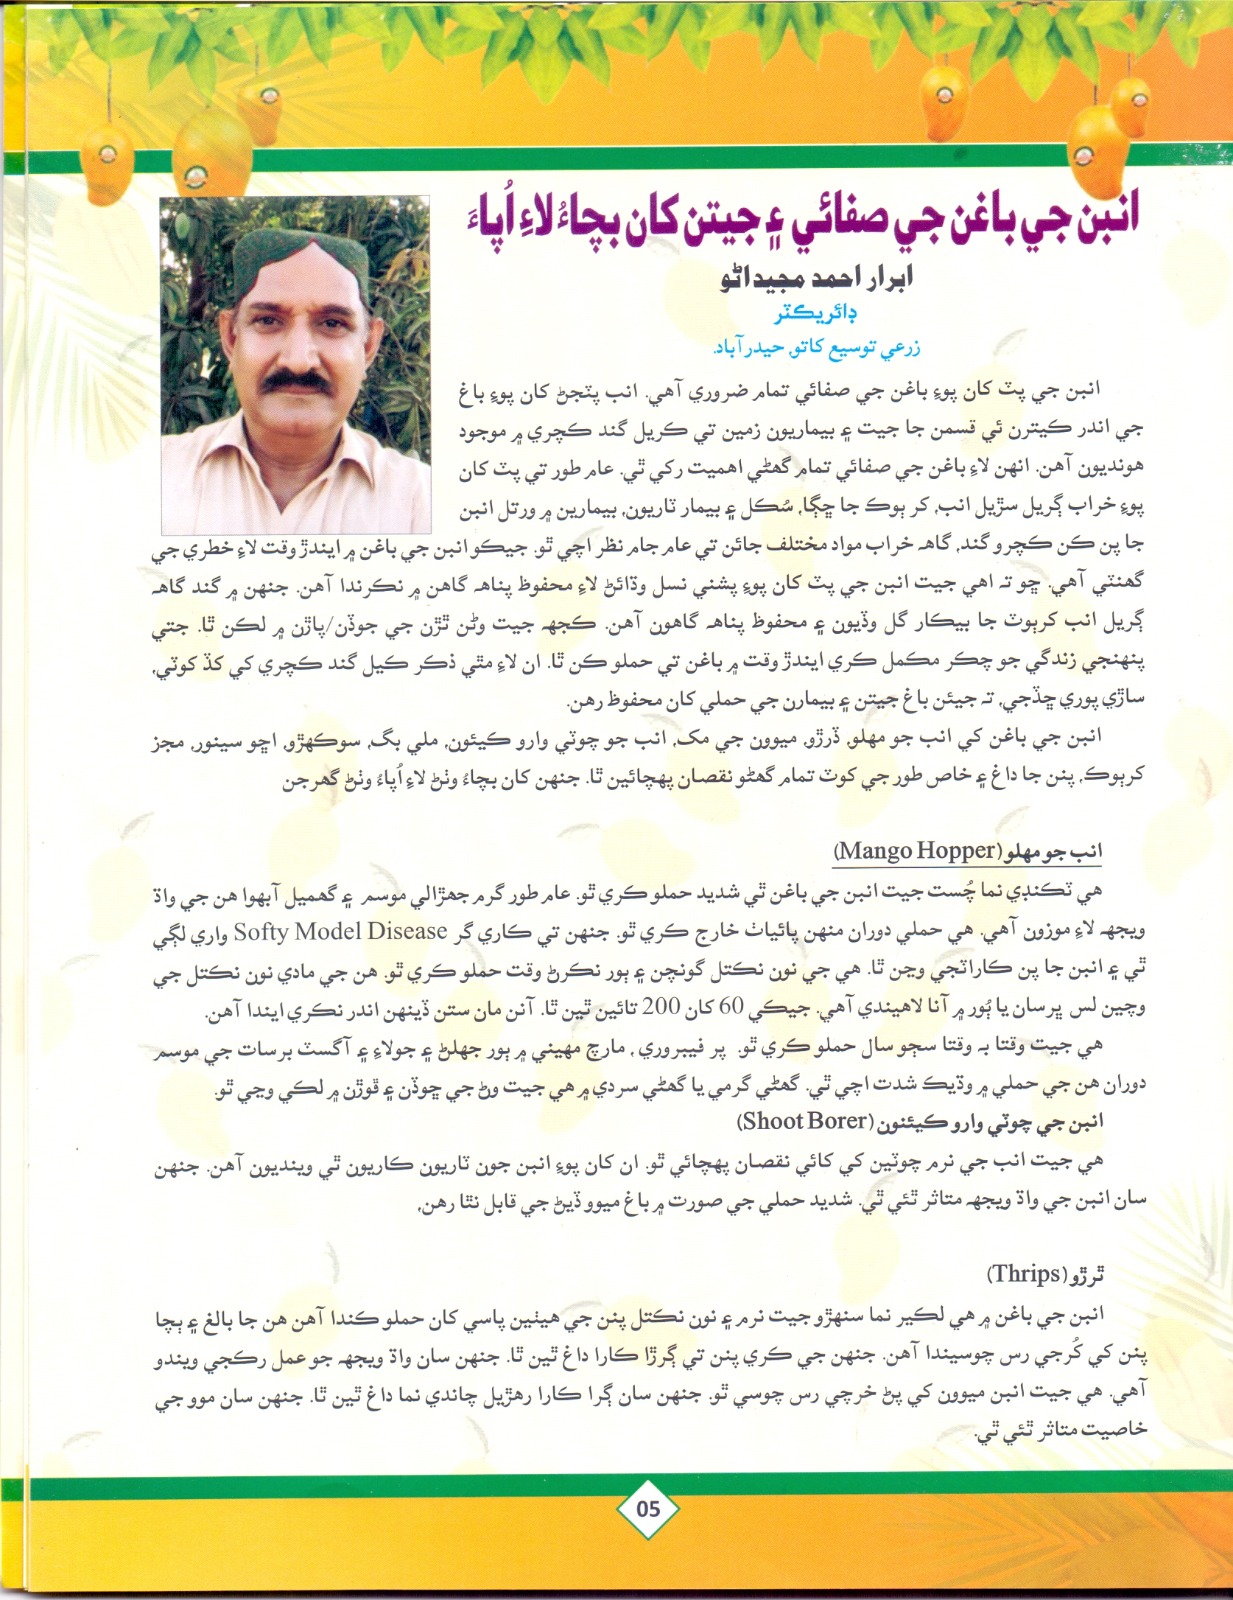 انبن جي باغن جي صفائي ۽ جيتن کان بچاءُ لاءِ اُپاءَ
ابرار احمد مجيداڻو
ڊائريڪٽر
زرعي توسيع کاتو، حيدرآباد.
انبن جي پٽ کان پوءِ باغن جي صفائي تمام ضروري آهي. انب پٽجڻ کان پوءِ باغ
جي اندر ڪيترن ئي قسمن جا جيت ۽ بيماريون زمين تي ڪريل گند ڪچري ۾ موجود
هونديون آهن. انهن لاءِ باغن جي صفائي تمام گهڻي اهميت رکي ٿي. عام طور تي پٽ کان
پوءِ خراب ڳريل سڙيل انب، ڪر ٻوڪ جا ڇڳا، سُڪل ۽ بيمار ٽاريون، بيمارين ۾ ورتل انبن
جا پن ڪن ڪچرو گند، گاهه خراب مواد مختلف جائن تي عام جام نظر اچي ٿو. جيڪو انبن جي باغن ۾ ايندڙ وقت لاءِ خطري جي
گهنٽي آهي. ڇو ته اهي جيت انبن جي پٽ کان پوءِ پشني نسل وڌائڻ لاءِ محفوظ پناهه گاهن ۾ نڪرندا آهن. جنهن ۾ گند گاهه
ڳريل انب ڪرٻوٽ جا بيڪار گل وڏيون ۽ محفوظ پناهه گاهون آهن. ڪجهه جيت وڻن ٿڙن جي جوڏن/پاڙن ۾ لڪن ٿا. جتي
پنهنجي زندگي جو چڪر مڪمل ڪري ايندڙ وقت ۾ باغن تي حملو ڪن ٿا. ان لاءِ مٿي ذڪر ڪيل گند ڪچري کي کڏ کوٽي،
ساڙي پوري ڇڏجي، ته جيئن باغ جيتن ۽ بيمارن جي حملي کان محفوظ رهن.
انبن جي باغن کي انب جو مهلو، ڏرڙو، ميوون جي مک، انب جو چوٽي وارو ڪيئون، ملي بگ، سوڪهڙو، اڇو سينور، مڇز
ڪرٻوڪ، پنن جا داغ ۽ خاص طور جي کوٽ تمام گهڻو نقصان پهچائين ٿا. جنهن کان بچاءُ وٺڻ لاءِ اُپاءُ وٺڻ گهرجن
انب جو مهلو (Mango Hopper)
هي ٽڪنڊي نما چُست جيت انبن جي باغن ٿي شديد حملو ڪري ٿو. عام طور گرم جهڙالي موسم ۽ گهميل آبهوا هن جي واڌ
ويجهه لاءِ موزون آهي. هي حملي دوران منهن پائياٺ خارج ڪري ٿو. جنهن تي ڪاري گر Softy Model Disease واري لڳي
ٿي ۽ انبن جا پن ڪاراٽجي وڃن ٿا. هي جي نون نڪتل گونچن ۽ ٻور نڪرڻ وقت حملو ڪري ٿو. هن جي مادي نون نڪتل جي
وچين لس ڀرسان يا ٻُور ۾ آنا لاهيندي آهي. جيڪي 60 کان 200 تائين ٿين ٿا. آنن مان ستن ڏينهن اندر نڪري ايندا آهن.
هي جيت وقتا به وقتا سڄو سال حملو ڪري ٿو. پر فيبروري، مارچ مهيني ۾ ٻور جهلڻ ۽ جولاءِ ۽ آگسٽ برسات جي موسم
دوران هن جي حملي ۾ وڌيڪ شدت اچي ٿي. گهڻي گرمي يا گهڻي سردي ۾ هي جيت وڻ جي ڇوڏن ۽ ڦوڙن ۾ لڪي وڃي ٿو.
انبن جي چوٽي وارو ڪيئنون (Shoot Borer)
هي جيت انب جي نرم چوٽين کي کائي نقصان پهچائي ٿو. ان کان پوءِ انبن جون ٽاريون ڪاريون ٿي وينديون آهن. جنهن
سان انبن جي واڌ ويجهه متاثر ٿئي ٿي. شديد حملي جي صورت ۾ باغ ميوو ڏيڻ جي قابل نٿا رهن،
ٿرڙو (Thrips)
انبن جي باغن ۾ هي لڪير نما سنهڙو جيت نرم ۽ نون نڪتل پنن جي هيٺين پاسي کان حملو ڪندا آهن هن جا بالغ ۽ ٻچا
پنن کي کُرجي رس چوسيندا آهن. جنهن جي ڪري پنن تي ڳرڙا ڪارا داغ ٿين ٿا. جنهن سان واڌ ويجهه جو عمل رڪجي ويندو
آهي. هي جيت انبن ميوون کي پڻ خرچي رس چوسي ٿو. جنهن سان ڳرا ڪارا رهڙيل چاندي نما داغ ٿين ٿا. جنهن سان موو جي
خاصيت متاثر ٿئي ٿي.
05